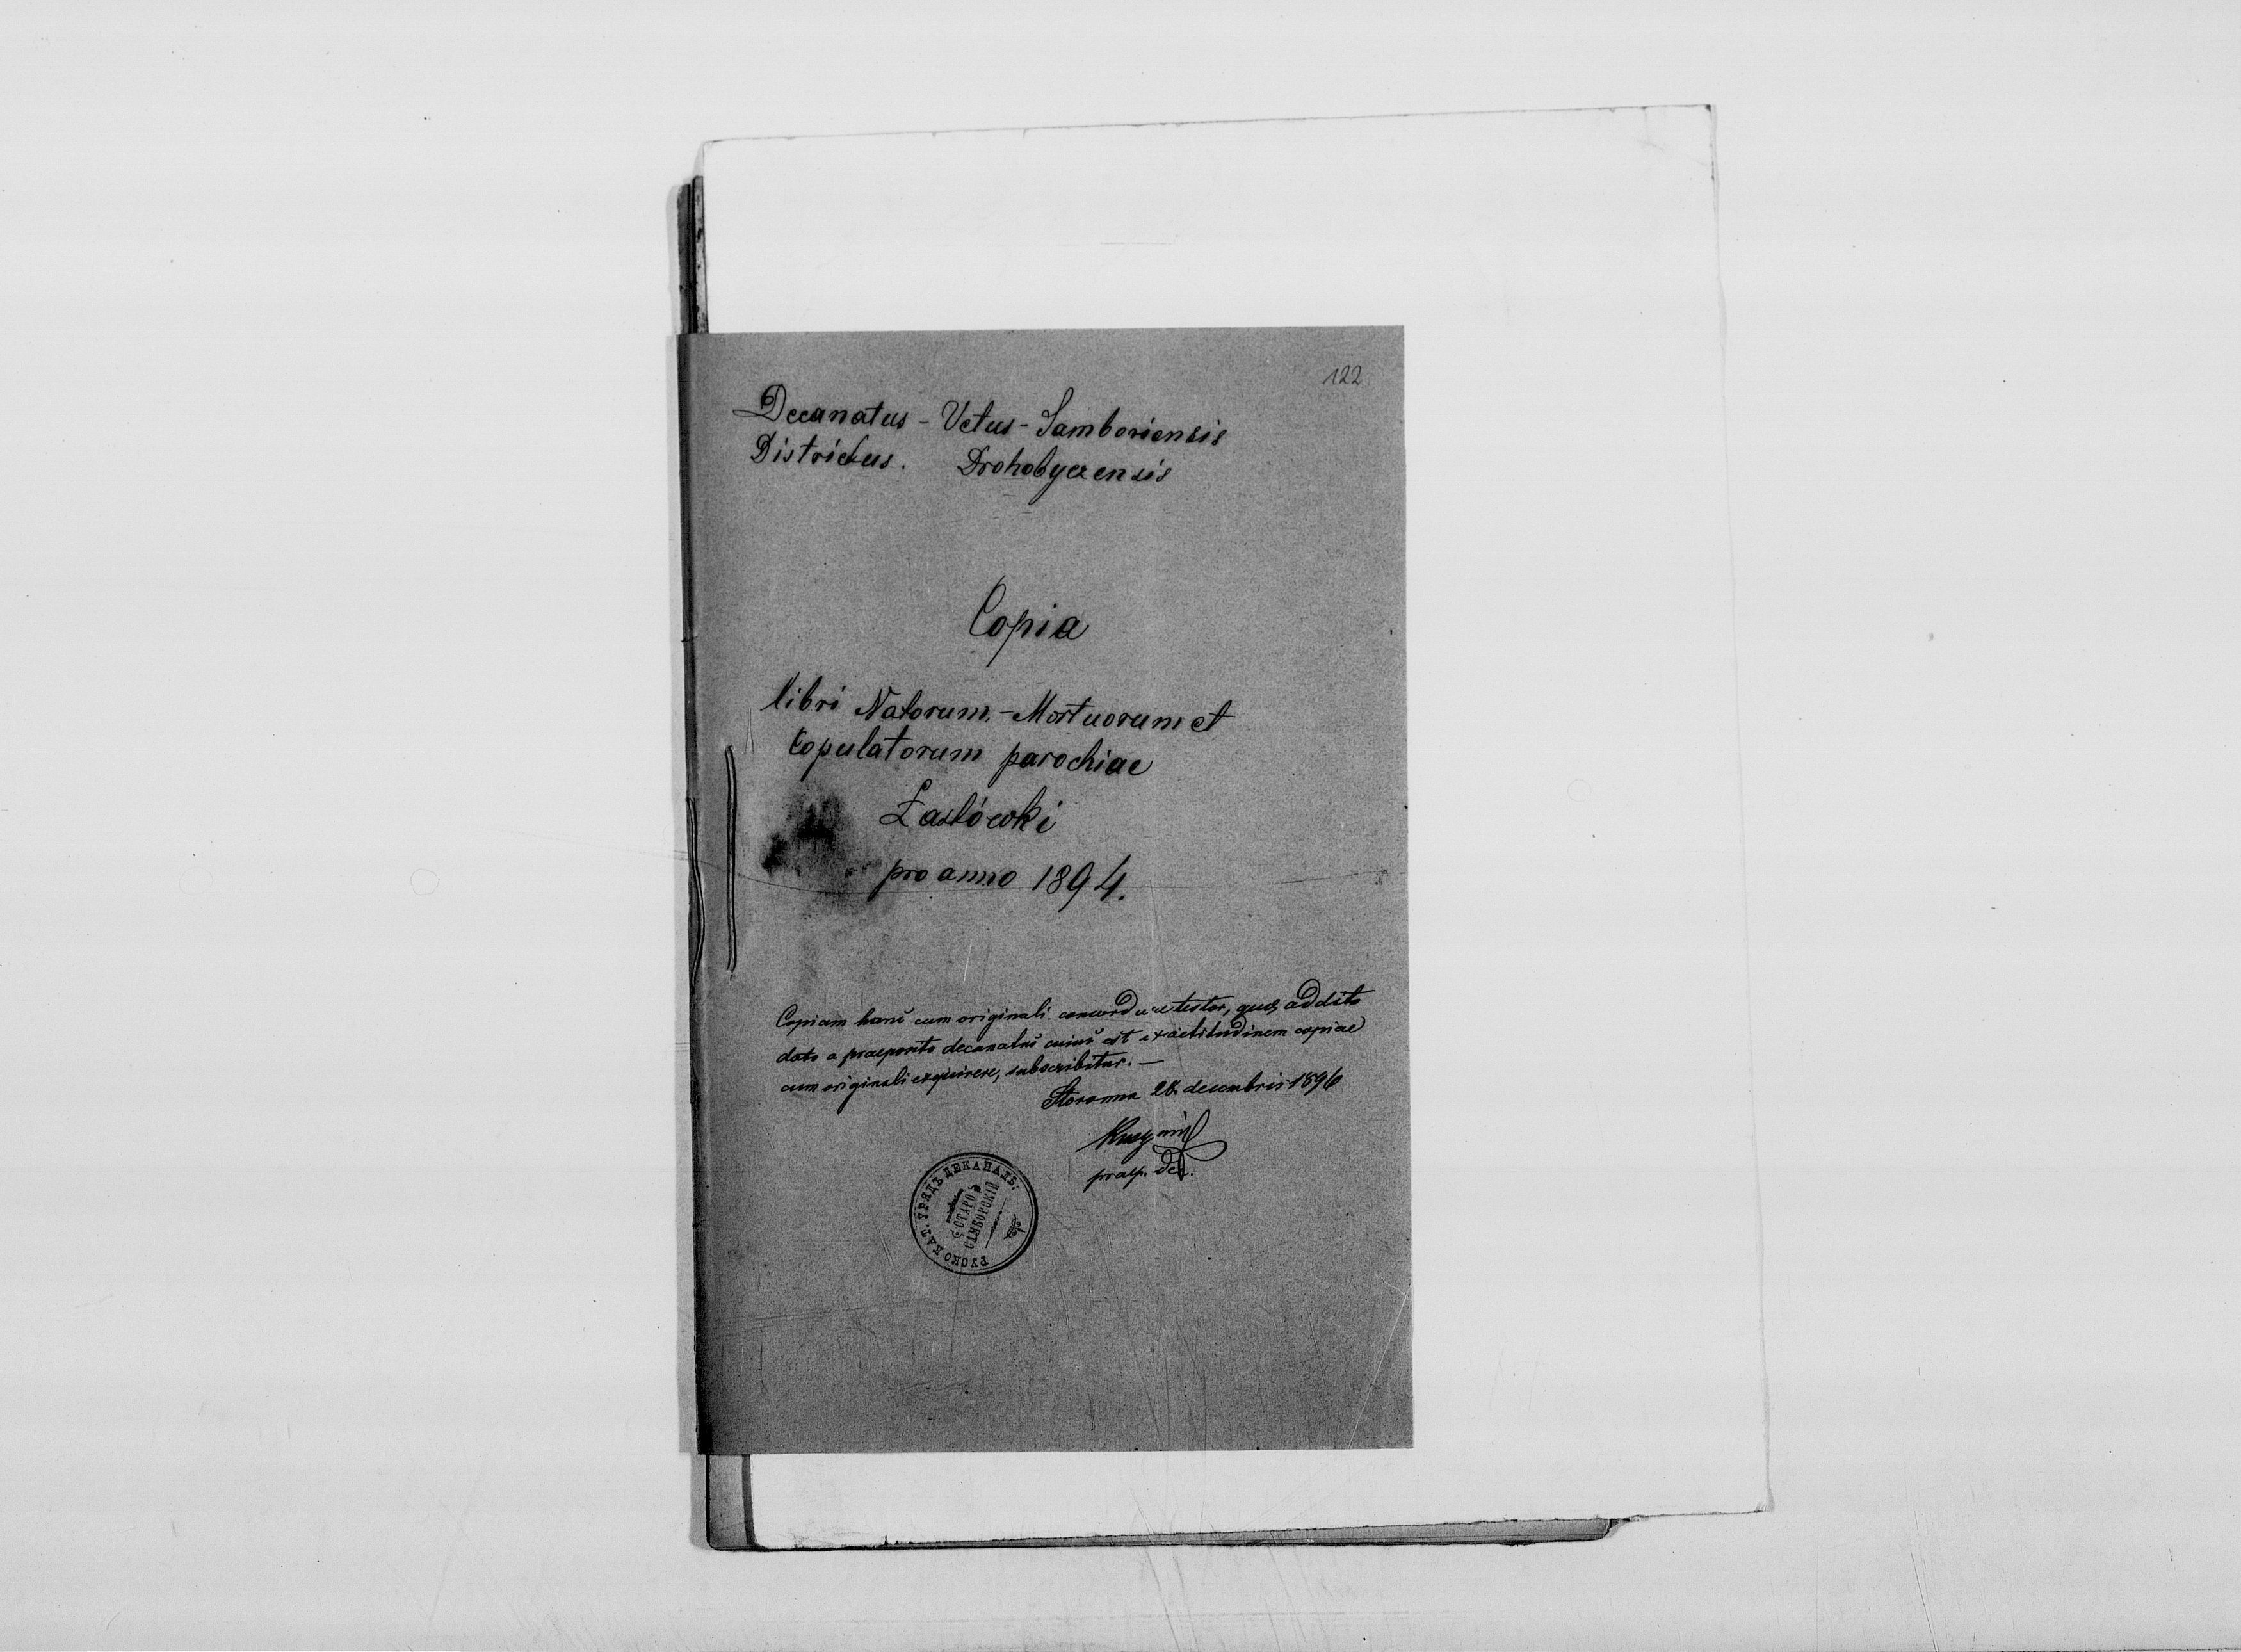 122
Decanatus - Vetus - Samboriensis
Districtus. Drohobyczensis
Copia
libri Natorum, - Mortuorum et
Copulatorum parochiae
Łastówki
pro anno 1894.
Copiam hanc cum originali concordare testor, quod addito
dato a praeposito decanatus cuius est exactitudinem copiae
cum originali exquirere, subscribitur. —
28. decembris 1896
praep. dec.
РУСКО КАТ. УРЯДЪ ДЕКАНАЛЬ:
СТАРО
САМБОРСКІЙ